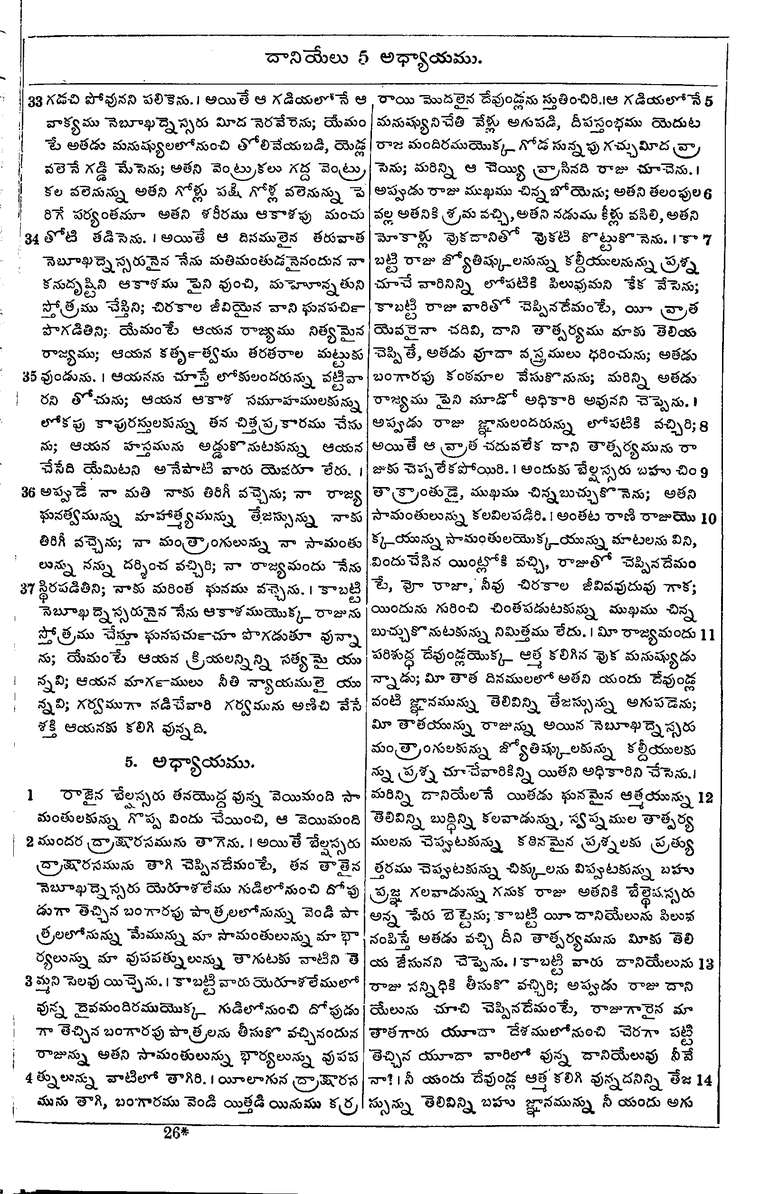 దానియేలు 5 అధ్యాయము.
33 గడచి పోవునని పలికెను. । అయితే ఆ గడియలోనే ఆ
వాక్యము నెబూఖద్నెస్సరు మీద నెరవేరెను; యేమం
టే అతడు మనుష్యులలోనుంచి తోలివేయబడి, యెడ్ల
వలెనే గడ్డి మేసెను; అతని వెంట్రుకలు గద్ద వెంట్రు
కల వలెనున్ను అతని గోళ్లు పక్షి గోళ్ల వలెనున్ను పె
రిగే పర్యంతమూ అతని శరీరము ఆకాశపు మంచు
34 తోటి తడిసెను. । అయితే ఆ దినములైన తరువాత
నెబూఖద్నెస్సరునైన నేను మతిమంతుడనైనందున నా
కనుదృష్టిని ఆకాశము పైని వుంచి, మహోన్నతుని
స్తోత్రము చేస్తిని; చిరకాల జీవియైన వాని ఘనపర్చి
పొగడితిని; యేమంటే ఆయన రాజ్యము నిత్యమైన
రాజ్యము; ఆయన కర్తృత్వము తరతరాల మట్టుకు
35 వుండును. । ఆయనను చూస్తే లోకులందరున్ను వట్టివా
రని తోచును; ఆయన ఆకాశ సమూహములకున్ను
లోకపు కాపురస్తులకున్ను తన చిత్తప్రకారము చేసు
ను; ఆయన హస్తమును అడ్డుకొనుటకున్ను ఆయన
చేసేది యేమిటని అనేపాటి వారు యెవరూ లేరు. ।
36 అప్పుడే నా మతి నాకు తిరిగీ వచ్చెను; నా రాజ్య
ఘనత్వమున్ను మాహాత్మ్యమున్ను తేజస్సున్ను నాకు
తిరిగీ వచ్చెను; నా మంత్రాంగులున్ను నా సామంతు
లున్ను నన్ను దర్శించ వచ్చిరి; నా రాజ్యమందు నేను
37 స్థిరపడితిని; నాకు మరింత ఘనము వచ్చెను. । కాబట్టి
నెబూఖద్నెస్సరునైన నేను ఆకాశముయొక్క రాజును
స్తోత్రము చేస్తూ ఘనపర్చుచూ పొగడుతూ వున్నా
ను; యేమంటే ఆయన క్రియలన్నిన్ని సత్యమై యు
న్నవి; ఆయన మార్గములు నీతి న్యాయములై యు
న్నవి; గర్వముగా నడిచేవారి గర్వమును అణిచి వేసే
శక్తి ఆయనకు కలిగి వున్నది.
5. అధ్యాయము.
1 రాజైన బేల్షస్సరు తనయొద్ద వున్న వెయిమంది సా
మంతులకున్ను గొప్ప విందు చేయించి, ఆ వెయిమంది
2 ముందర ద్రాక్షారసమును తాగెను. । అయితే బేల్షస్సరు
ద్రాక్షారసమును తాగి చెప్పినదేమంటే, తన తాతైన
నెబూఖద్నెస్సరు యెరూశలేము గుడిలోనుంచి దోపు
డుగా తెచ్చిన బంగారపు పాత్రలలోనున్ను వెండి పా
త్రలలోనున్ను మేమున్ను మా సామంతులున్ను మా భా
ర్యలున్ను మా వుపపత్నులున్ను తాగుటకు వాటిని తె
3 మ్మని సెలవు యిచ్చెను. । కాబట్టి వారు యెరూశలేములో
వున్న దైవమందిరముయొక్క గుడిలోనుంచి దోపుడు
గా తెచ్చిన బంగారపు పాత్రలను తీసుకొ వచ్చినందున
రాజున్ను అతని సామంతులున్ను భార్యలున్ను వుపప
4 త్నులున్ను వాటిలో తాగిరి. । యీలాగున ద్రాక్షారస
మును తాగి, బంగారము వెండి యిత్తడి యినుము కర్ర
రాయి మొదలైన దేవుండ్లను స్తుతించిరి. ।ఆ గడియలోనే 5
మనుష్యునిచేతి వేళ్లు అగుపడి, దీపస్తంభము యెదుట
రాజ మందిరముయొక్క గోడ సున్నపు గచ్చుమీద వ్రా
సెను; మరిన్ని ఆ చెయ్యి వ్రాసినది రాజు చూచెను. ।
అప్పుడు రాజు ముఖము చిన్న బోయెను; అతని తలంపుల 6
వల్ల అతనికి శ్రమ వచ్చి, అతని నడుము కీళ్లు వసిలి, అతని
మోకాళ్లు వొకదానితో వొకటి కొట్టుకొనెను. । కా 7
బట్టి రాజు జ్యోతిష్కులనున్ను కల్దీయులనున్ను ప్రశ్న
చూచే వారినిన్ని లోపటికి పిలువుమని కేక వేసెను;
కాబట్టి రాజు వారితో చెప్పినదేమంటే, యీ వ్రాత
యెవరైనా చదివి, దాని తాత్పర్యము మాకు తెలియ
చెప్పితే, అతడు వూదా వస్త్రములు ధరించును; అతడు
బంగారపు కంఠమాల వేసుకొనును; మరిన్ని అతడు
రాజ్యము పైని మూడో అధికారి అవునని చెప్పెను. ।
అప్పుడు రాజు జ్ఞానులందరున్ను లోపటికి వచ్చిరి; 8
అయితే ఆ వ్రాత చదువలేక దాని తాత్పర్యమును రా
జుకు చెప్పలేకపోయిరి. । అందుకు బేల్షస్సరు బహు చిం 9
తాక్రాంతుడై, ముఖము చిన్నబుచ్చుకొనెను; అతని
సామంతులున్ను కలవిలపడిరి. । అంతట రాణి రాజుయొ 10
క్కయున్ను సామంతులయొక్కయున్ను మాటలను విని,
విందుచేసిన యింట్లోకి వచ్చి, రాజుతో చెప్పినదేమం
టే, వో రాజా, నీవు చిరకాల జీవివవుదువు గాక;
యిందును గురించి చింతపడుటకున్ను ముఖము చిన్న
బుచ్చుకొనుటకున్ను నిమిత్తము లేదు. । మీ రాజ్యమందు 11
పరిశుద్ధ దేవుండ్లయొక్క ఆత్మ కలిగిన వొక మనుష్యుడు
న్నాడు; మీ తాత దినములలో అతని యందు దేవుండ్ల
వంటి జ్ఞానమున్ను తెలివిన్ని తేజస్సున్ను అగుపడెను;
మీ తాతయున్ను రాజున్ను అయిన నెబూఖద్నెస్సరు
మంత్రాంగులకున్ను జ్యోతిష్కులకున్ను కల్దీయులకు
న్ను ప్రశ్న చూచేవారికిన్ని యితని అధికారిని చేసెను. ।
మరిన్ని దానియేలనే యితడు ఘనమైన ఆత్మయున్ను 12
తెలివిన్ని బుద్ధిన్ని కలవాడున్ను, స్వప్నముల తాత్పర్య
ములను చెప్పుటకున్ను కఠినమైన ప్రశ్నలకు ప్రత్యు
త్తరము చెప్పుటకున్ను చిక్కులను విప్పుటకున్ను బహు
ప్రజ్ఞ గలవాడున్ను గనుక రాజు అతనికి బేల్తెషస్సరు
అన్న పేరు బెట్టెను; కాబట్టి యీ దానియేలును పిలువ
నంపిస్తే అతడు వచ్చి దీని తాత్పర్యమును మీకు తెలి
య జేసునని చెప్పెను. । కాబట్టి వారు దానియేలును 13
రాజు సన్నిధికి తీసుకొ వచ్చిరి; అప్పుడు రాజు దాని
యేలును చూచి చెప్పినదేమంటే, రాజుగారైన మా
తాతగారు యూదా దేశములోనుంచి చెరగా పట్టి
తెచ్చిన యూదా వారిలో వున్న దానియేలువు నీవే
నా?। నీ యందు దేవుండ్ల ఆత్మ కలిగి వున్నదనిన్ని తేజ 14
స్సున్ను తెలివిన్ని బహు జ్ఞానమున్ను నీ యందు అగు
26*